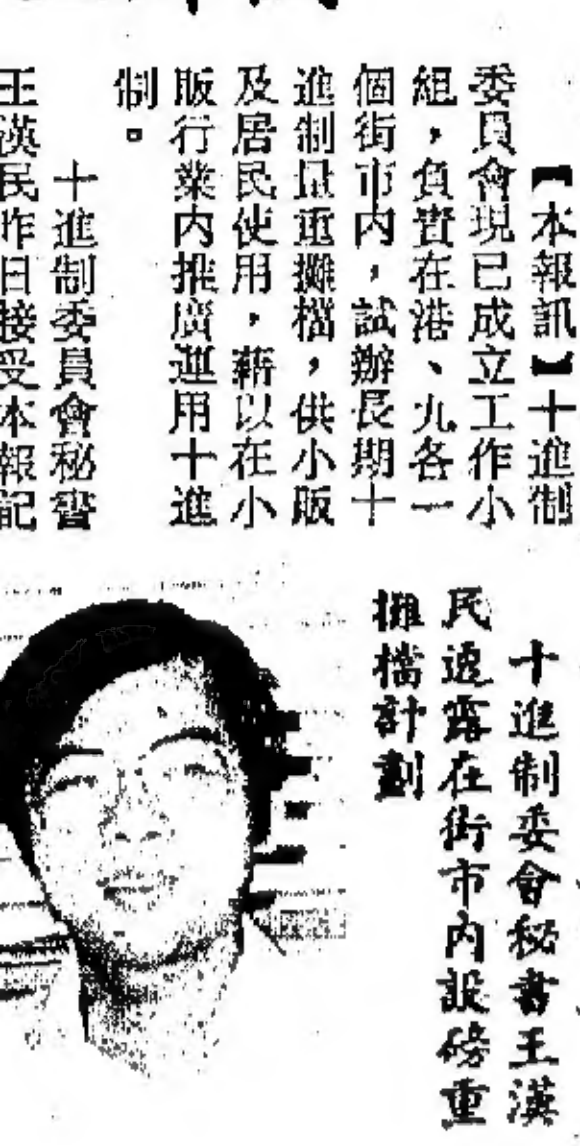 【本報訊】十進制
委員會現已成立工作小
組,負責在港、九各一
個街市內,試辦長期十
進制量重攤檔,供小販
及居民使用,藉以在小
販行業內推廣運用十進
制。
十進制委員會秘書
王漢民昨日接受本報記
十進制委會秘書王漢
民透露在街市內設磅重
攤檔計劃